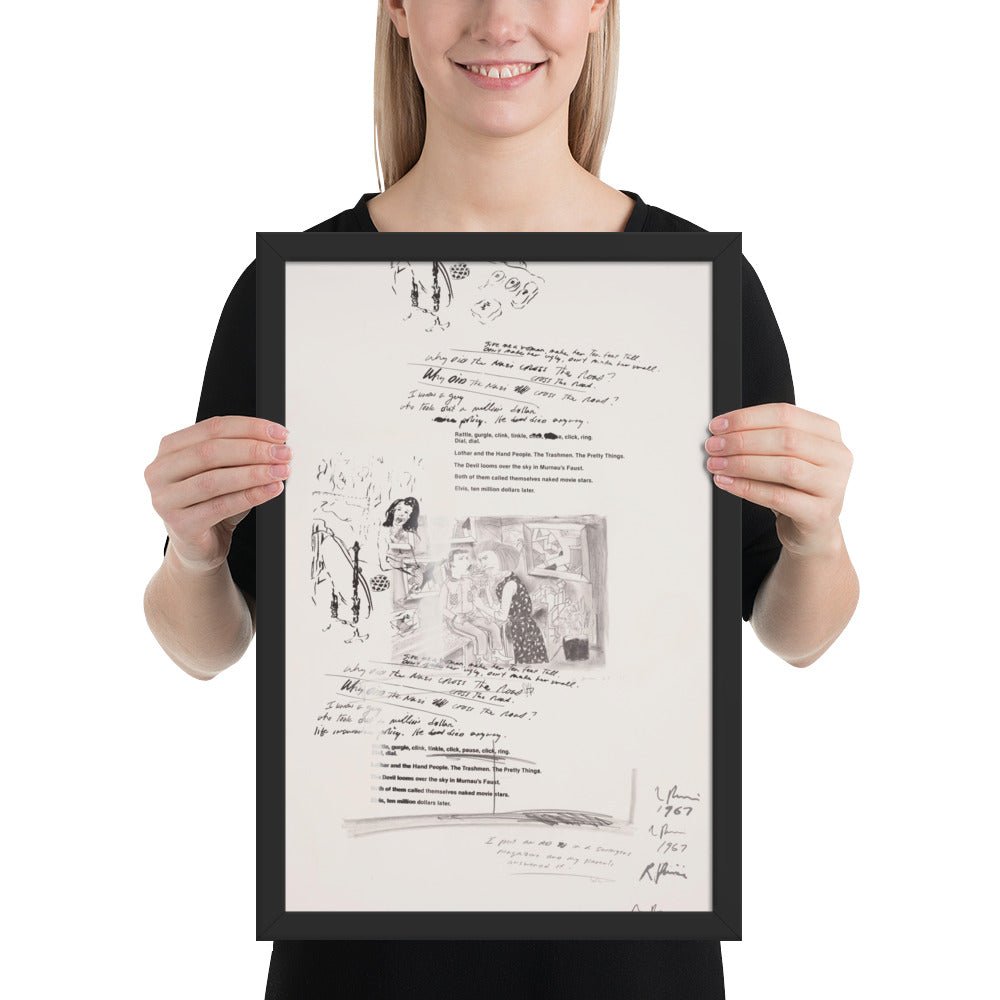 Give me a woman, make her Ten feet Tall
Don't make her ugly, don't make her small.
Why Did The Nazi CROSS The Road?
CROSS The Road.
Why DiD The Nazi CROSS The Road?
I knew a guy
who Took out a million dollar
policy. He died anyway.
Rattle, gurgle, clink, tinkle, click, click, ring.
Dial, dial.
Lothar and the Hand People. The Trashmen. The Pretty Things.
The Devil looms over the sky in Murnau's Faust.
Both of them called themselves naked movie stars.
Elvis, ten million dollars later.
Give me a woman, make her Ten feet Tall
Don't make her ugly, don't make her small.
Why DiD The Nazi CROSS The Road?
CROSS The Road.
Why DiD The Nazi CROSS The Road?
I knew a guy
who Took out a million dollar
life insurance policy. He died anyway.
Rattle, gurgle, clink, tinkle, click, pause, click, ring.
Dial, dial.
Lothar and the Hand People. The Trashmen. The Pretty Things.
The Devil looms over the sky in Murnau's Faust.
Both of them called themselves naked movie stars.
Elvis, ten million dollars later.
1967
1967
I put an ad in a swingers
magazine and my parents
answered it.